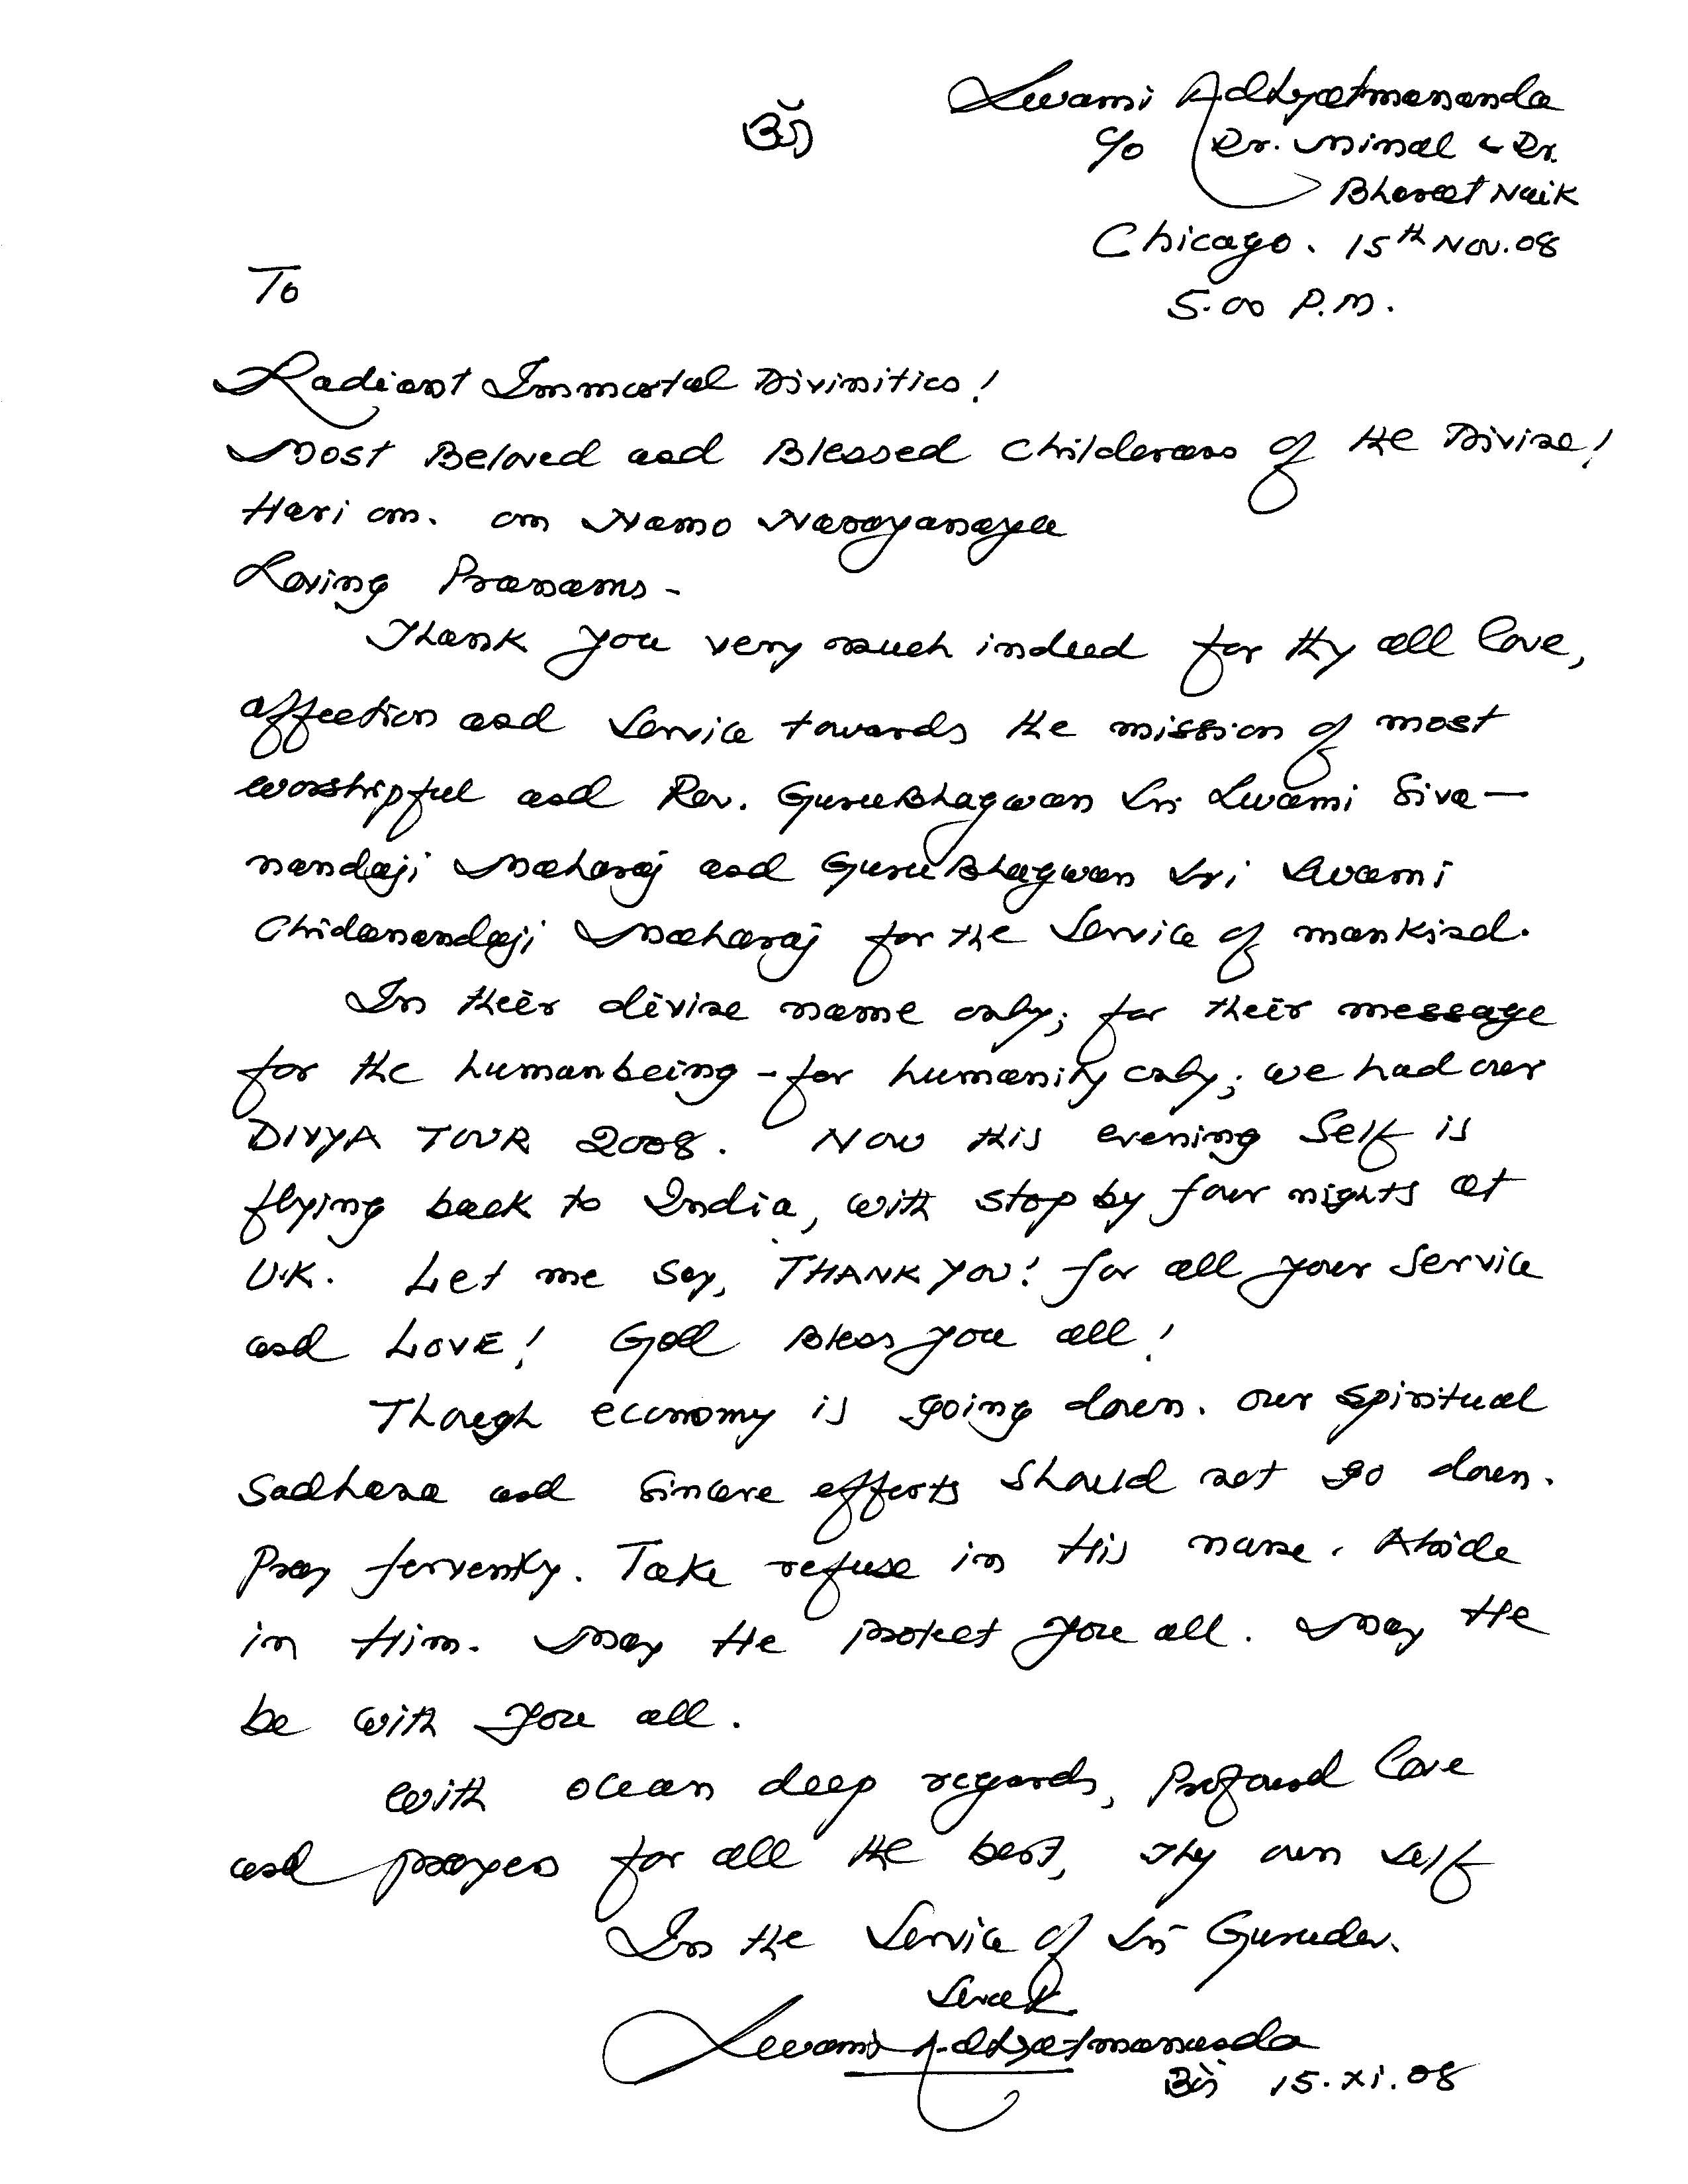 ॐ
Swami Adhyatmananda
c/o Dr. Minal & Dr.
Bharat Naik
Chicago. 15th Nov. 08
5.00 P.M.
To
Radiant Immortal Divinities!
Most Beloved and Blessed Childerens of the Divine!
Hari om. om Namo Narayanaya
Loving Pranams -
Thank you very much indeed for thy all love,
affection and Service towards the mission of most
worshipful and Rev. GuruBhagwan Sri Swami Siva-
nandaji Maharaj and GuruBhagwan Sri Swami
Chidanandaji Maharaj for the Service of mankind.
In their divine name only; for their message
for the humanbeing - for humanity only; we had our
DIVYA TOUR 2008. Now this evening Self is
flying back to India, with stop by four nights at
U.K. Let me say, THANK YOU! for all your Service
and LOVE! God Bless you all!
Though economy is going down. our spiritual
Sadhana and Sincere efforts should not go down.
Pray fervently. Take refuse in His name. Abide
in Him. May He protect you all. May He
be with you all.
With ocean deep regards, Profound love
and prayers for all the best, Thy own self
In the Service of Sri Gurudev.
Sevak
Swami Adhyatmananda
15.XI.08